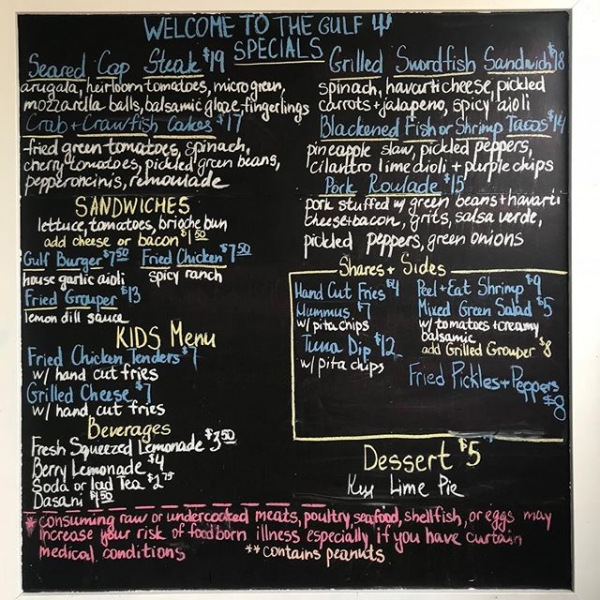 WELCOME TO THE GULF 4
SPECIALS
Seared Cap Steak $19
arugala, heirloom tomatoes, microgreen,
mozzarella balls, balsamic glaze, fingerlings
Crab + Crawfish Cakes $17
fried green tomatoes, spinach,
cherry tomatoes, pickled green beans,
pepperoncinis, remoulade
SANDWICHES
lettuce, tomatoes, brioche bun
add cheese or bacon $1.50
Gulf Burger $7.50
house garlic aioli
Fried Chicken $7.50
spicy ranch
Fried Grouper $13
lemon dill sauce
KIDS Menu
Fried Chicken Tenders $7
w/ hand cut fries
Grilled Cheese $7
w/ hand cut fries
Beverages
Fresh Squeezed Lemonade $3.50
Berry Lemonade $4
Soda or Iced Tea $2.75
Dasani $1.50
Grilled Swordfish Sandwich $18
spinach, havarti cheese, pickled
carrots + jalapeno, spicy aioli
Blackened Fish or Shrimp Tacos $14
pineapple slaw, pickled peppers,
cilantro lime aioli + purple chips
Pork Roulade $15
pork stuffed w/ green beans + havarti
cheese + bacon, grits, salsa verde,
pickled peppers, green onions
Shares + Sides
Hand Cut Fries $4
Hummus $7
w/ pita chips
Tuna Dip $12
w/ pita chips
Peel + Eat Shrimp $9
Mixed Green Salad $5
w/ tomatoes + creamy
balsamic
add Grilled Grouper $8
Fried Pickles + Peppers
$8
Dessert $5
Key Lime Pie
* consuming raw or undercooked meats, poultry, seafood, shellfish, or eggs may
increase your risk of foodborn illness especially if you have curtain
medical conditions
** contains peanuts